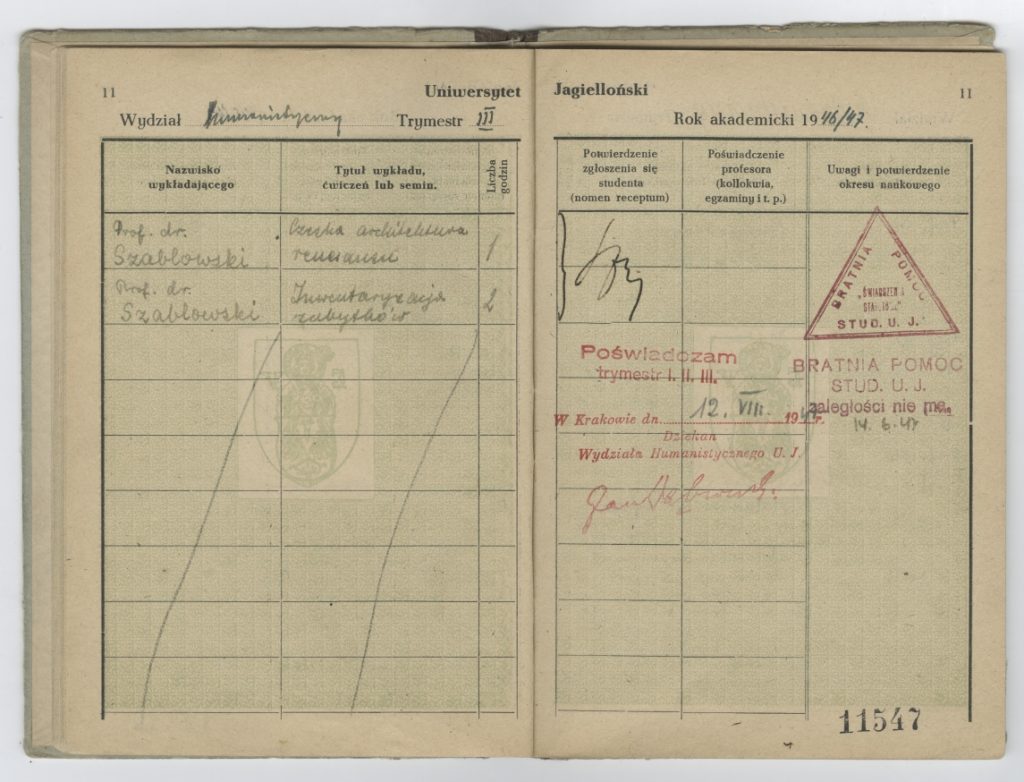 11
Uniwersytet Jagielloński
11
Wydział Humanistyczny Trymestr III
Rok akademicki 1946/47.
Nazwisko
wykładającego
Tytuł wykładu,
ćwiczeń lub semin.
Liczba
godzin
Potwierdzenie
zgłoszenia się
studenta
(nomen receptum)
Poświadczenie
profesora
(kollokwia,
egzaminy i t. p.)
Uwagi i potwierdzenie
okresu naukowego
Prof. dr.
Szablowski
Czeska architektura
renesansu
1
Prof. dr.
Szablowski
Inwentaryzacja
zabytków
2
BRATNIA POMOC
STUD. U. J.
Poświadczam
trymestr I. II. III.
W Krakowie dn. 12. VIII. 1947 r.
Dziekan
Wydziału Humanistycznego U. J.
BRATNIA POMOC
STUD. U. J.
zaległości nie ma
14. 6. 47
11547